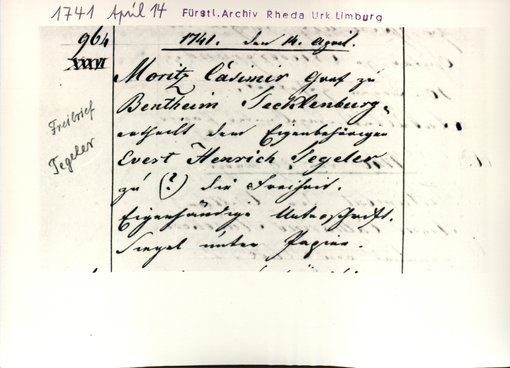 1741 April 14 Fürstl. Archiv Rheda Urk. Limburg
964
XXXVI
1741. den 14. April.
Moritz Casimir Graf zu
Bentheim Tecklenburg,
ertheilt dem Eigenbehörigen
Evert Henrich Tegeler
zu (?) die Freiheit.
Eigenhändige Unterschrift.
Siegel unter Papier.
Freibrief
Tegeler